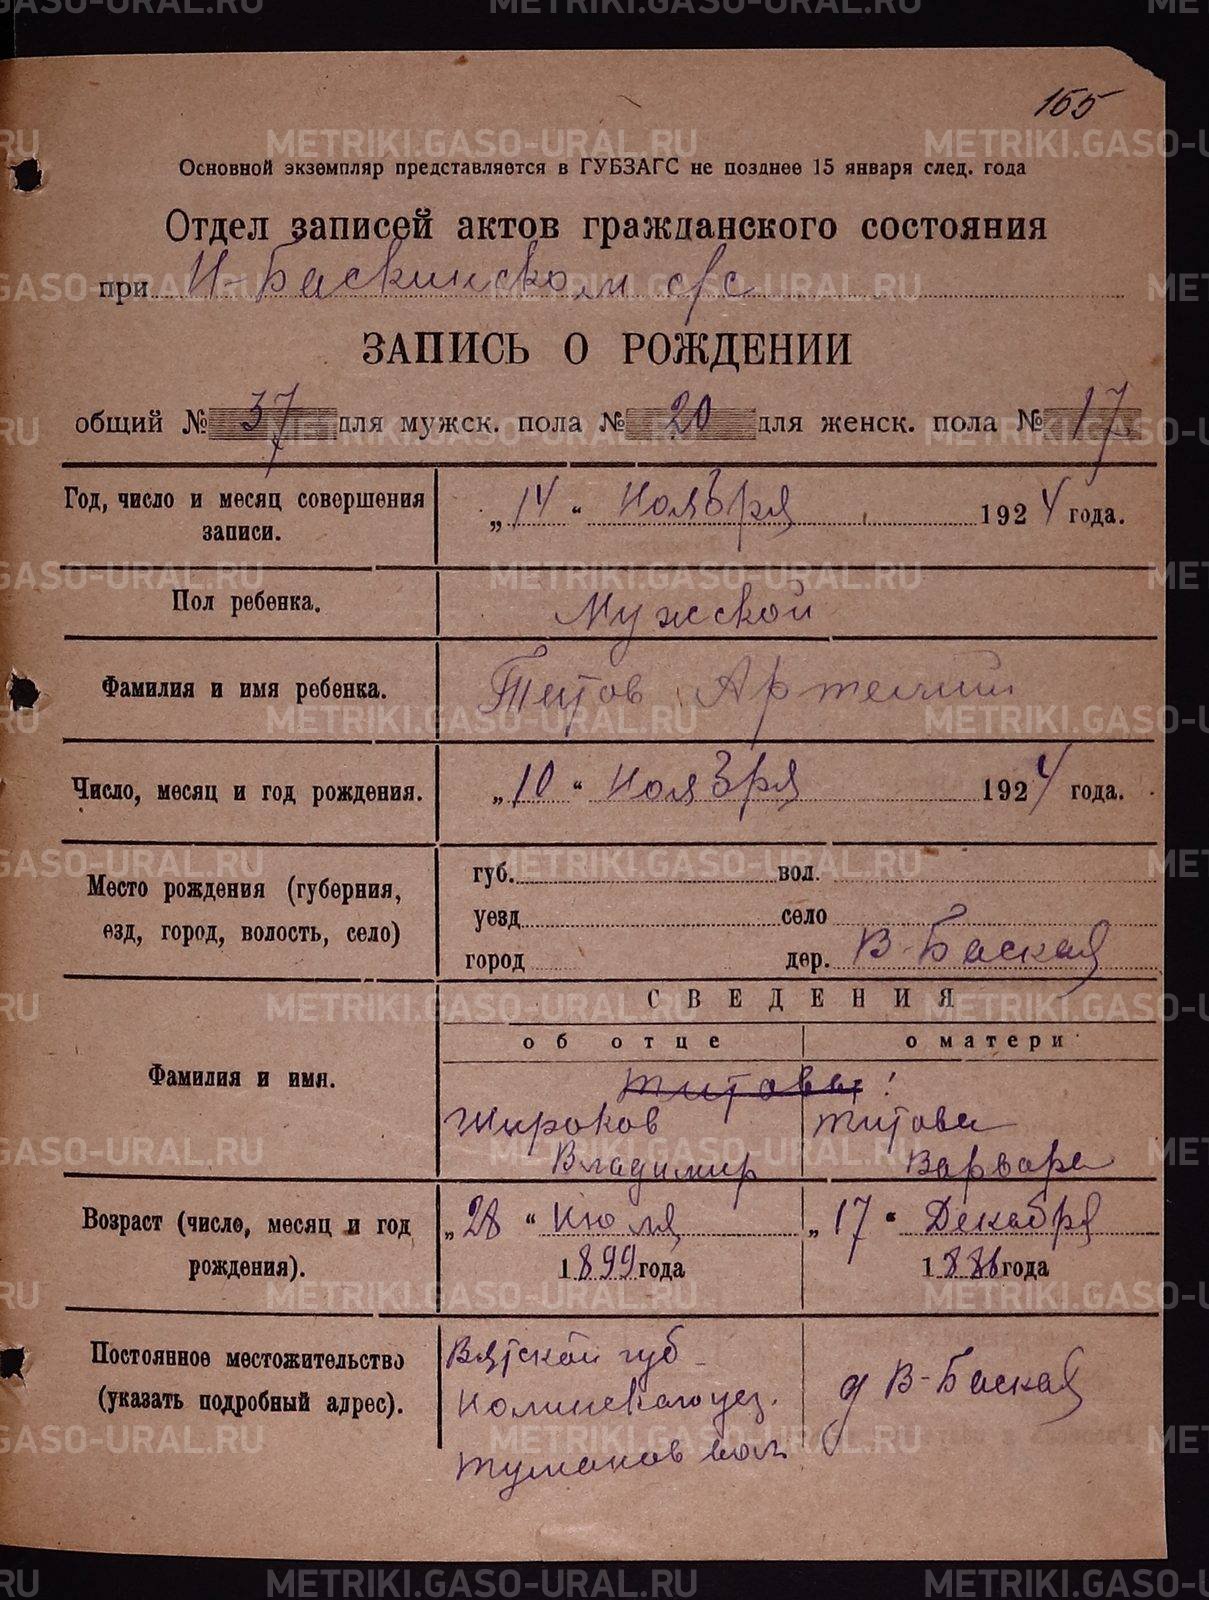 155
Основной экземпляр представляется в ГУБЗАГС не позднее 15 января след. года
Отдел записей актов гражданского состояния
при Н-Баскинском с/с
ЗАПИСЬ О РОЖДЕНИИ
общий № 37 для мужск. пола № 20 для женск. пола № 17
Год, число и месяц совершения записи.
„14“ Ноября 1924 года.
Пол ребенка.
Мужской
Фамилия и имя ребенка.
Титов Артемий
Число, месяц и год рождения.
„10“ Ноября 1924 года.
Место рождения (губерния,
езд, город, волость, село)
губ. вол.
уезд село
город дер. В-Баская
СВЕДЕНИЯ
об отце о матери
Фамилия и имя.
Титовы!
Широков Титова
Владимир Варвара
Возраст (число, месяц и год
рождения).
„28“ Июля „17“ Декабря
1899 года 1886 года
Постоянное местожительство
(указать подробный адрес).
Вятской губ д В-Баская
Нолинского уез.
Туманов вол
METRIKI.GASO-URAL.RU